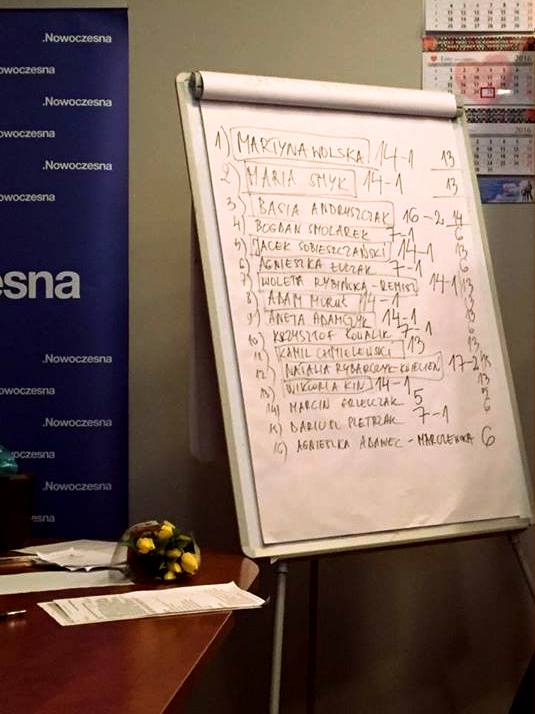 .Nowoczesna
Nowoczesna
.Nowoczesna
Nowoczesna
.Nowoczesna
Nowoczesna
esna
.Nowoczesna
Nowoczesna
.Nowoczesna
.Nowoczesna
2016
2016
1) MARTYNA WOLSKA 14-1 13
2 MARIA SMYK 14-1 13
3) BASIA ANDRUSZCZAK 16-2 14
4) BOGDAN SMOLAREK 7-1 6
5) JACEK SOBIESZCZAŃSKI 14-1 13
6) AGNIESZKA 7-1 6
7) WIOLETA RYBIŃSKA-REMISZ 14-1 13
8) ADAM 14-1 13
9) ANETA ADAMCZYK 14-1
10) KRZYSZTOF KOWALIK 7-1 6
11) KAMIL CHMIELEWSKI 13
12) NATALIA RYBARCZYK- 17-2
13) WIKTORIA KIN 14-1 13
14) MARCIN 5
15) DARIUSZ PIETRZAK 7-1 6
16) AGNIESZKA ADAMEC-MARCZEWSKA 6